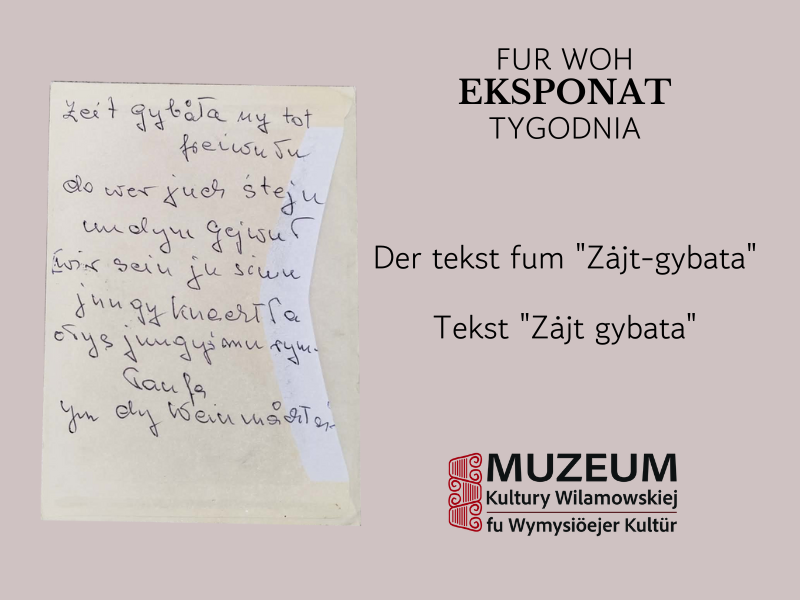 zeit gybåta ny tot
freiwułu
do wer juch śteju
undym Gejwuł
wir sein ju siwu
jungy knaertła
ołys jungyśmu rym-
łaufa
ym dy Weinmåkteł
FUR WOH
EKSPONAT
TYGODNIA
Der tekst fum "Zȧjt-gybata"
Tekst "Zȧjt gybata"
MUZEUM
Kultury Wilamowskiej
fu Wymysiöejer Kultür